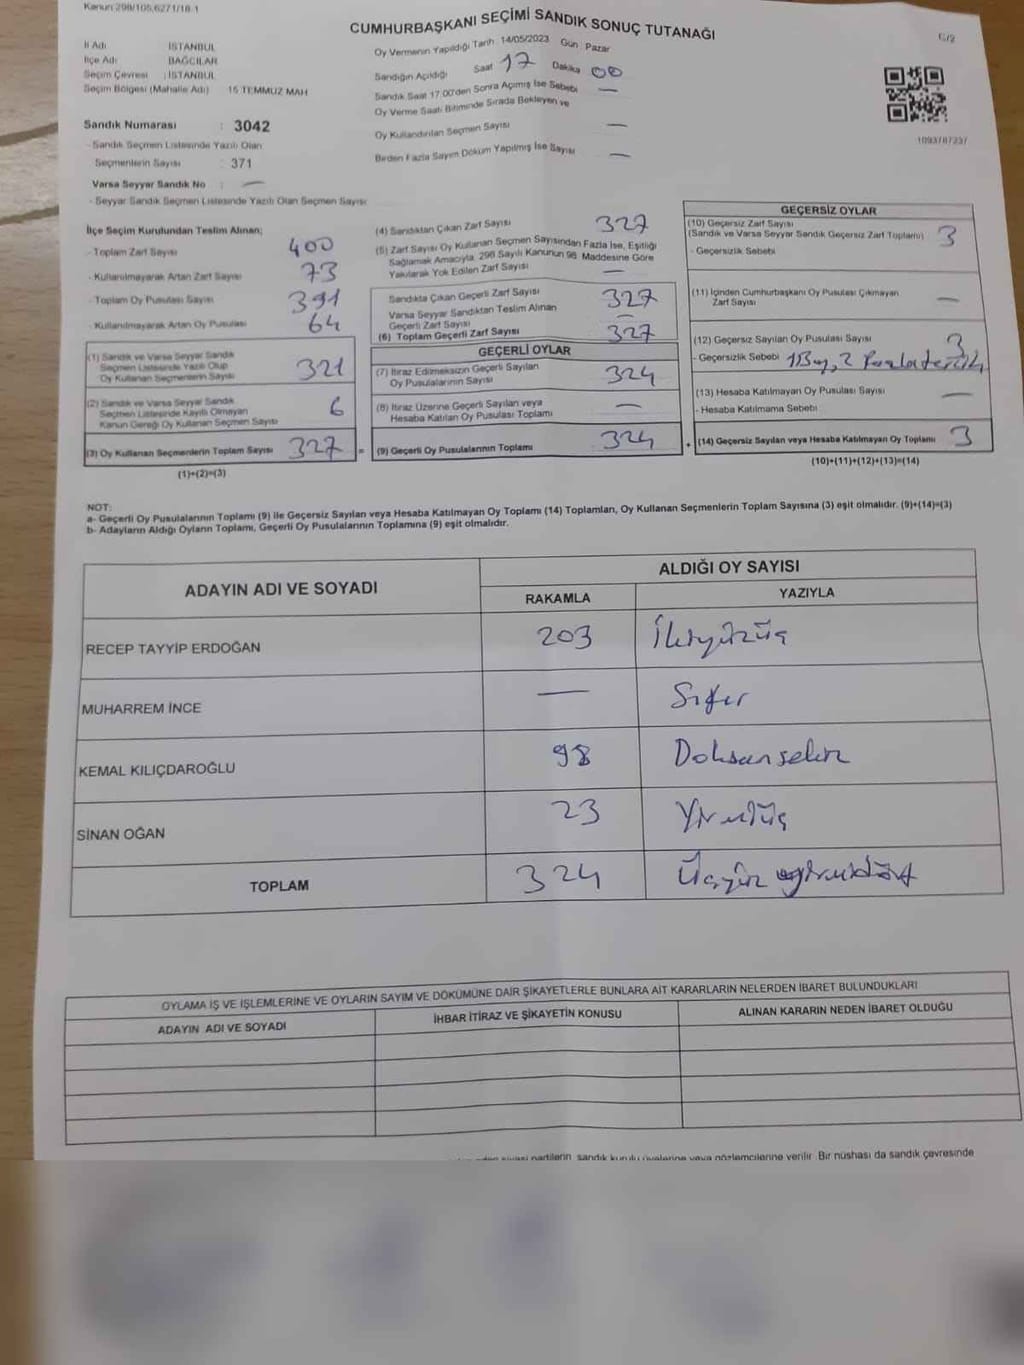 Kanun 298/105,6271/18-1
CUMHURBAŞKANI SEÇİMİ SANDIK SONUÇ TUTANAĞI
İl Adı : İSTANBUL
İlçe Adı : BAĞCILAR
Seçim Çevresi : İSTANBUL
Seçim Bölgesi (Mahalle Adı) 15 TEMMUZ MAH
Oy Vermenin Yapıldığı Tarih 14/05/2023 Gün Pazar
Sandığın Açıldığı Saat 17 Dakika 00
Sandık Saat 17:00'den Sonra Açımış İse Sebebi —
Oy Verme Saati Bitiminde Sırada Bekleyen ve
Oy Kullandırılan Seçmen Sayısı —
Birden Fazla Sayım Döküm Yapılmış İse Sayısı —
1093787237
Sandık Numarası : 3042
- Sandık Seçmen Listesinde Yazılı Olan
Seçmenlerin Sayısı : 371
Varsa Seyyar Sandık No : —
- Seyyar Sandık Seçmen Listesinde Yazılı Olan Seçmen Sayısı
İlçe Seçim Kurulundan Teslim Alınan;
- Toplam Zarf Sayısı 400
- Kullanılmayarak Artan Zarf Sayısı 73
- Toplam Oy Pusulası Sayısı 391
- Kullanılmayarak Artan Oy Pusulası 64
(1) Sandık ve Varsa Seyyar Sandık
Seçmen Listesinde Yazılı Olup
Oy Kullanan Seçmenlerin Sayısı 321
(2) Sandık ve Varsa Seyyar Sandık
Seçmen Listesinde Kayıtlı Olmayan
Kanun Gereği Oy Kullanan Seçmen Sayısı 6
(3) Oy Kullanan Seçmenlerin Toplam Sayısı 327
(1)+(2)=(3)
(4) Sandıktan Çıkan Zarf Sayısı 327
(5) Zarf Sayısı Oy Kullanan Seçmen Sayısından Fazla İse, Eşitliği
Sağlamak Amacıyla, 298 Sayılı Kanunun 98. Maddesine Göre
Yakılarak Yok Edilen Zarf Sayısı —
Sandıkta Çıkan Geçerli Zarf Sayısı 327
Varsa Seyyar Sandıktan Teslim Alınan
Geçerli Zarf Sayısı —
(6) Toplam Geçerli Zarf Sayısı 327
GEÇERLİ OYLAR
(7) İtiraz Edilmeksizin Geçerli Sayılan
Oy Pusulalarının Sayısı 324
(8) İtiraz Üzerine Geçerli Sayılan veya
Hesaba Katılan Oy Pusulası Toplamı —
(9) Geçerli Oy Pusulalarının Toplamı 324
GEÇERSİZ OYLAR
(10) Geçersiz Zarf Sayısı
(Sandık ve Varsa Seyyar Sandık Geçersiz Zarf Toplamı) 3
- Geçersizlik Sebebi
(11) İçinden Cumhurbaşkanı Oy Pusulası Çıkmayan
Zarf Sayısı —
(12) Geçersiz Sayılan Oy Pusulası Sayısı 3
- Geçersizlik Sebebi 1 Boş, 2 Fazla tercih
(13) Hesaba Katılmayan Oy Pusulası Sayısı —
- Hesaba Katılmama Sebebi
(14) Geçersiz Sayılan veya Hesaba Katılmayan Oy Toplamı 3
(10)+(11)+(12)+(13)=(14)
NOT:
a- Geçerli Oy Pusulalarının Toplamı (9) ile Geçersiz Sayılan veya Hesaba Katılmayan Oy Toplamı (14) Toplamları, Oy Kullanan Seçmenlerin Toplam Sayısına (3) eşit olmalıdır. (9)+(14)=(3)
b- Adayların Aldığı Oyların Toplamı, Geçerli Oy Pusulalarının Toplamına (9) eşit olmalıdır.
ADAYIN ADI VE SOYADI
ALDIĞI OY SAYISI
RAKAMLA YAZIYLA
RECEP TAYYİP ERDOĞAN 203 İkiyüzüç
MUHARREM İNCE — Sıfır
KEMAL KILIÇDAROĞLU 98 Doksansekiz
SİNAN OĞAN 23 Yirmiüç
TOPLAM 324 Üçyüz yirmidört
OYLAMA İŞ VE İŞLEMLERİNE VE OYLARIN SAYIM VE DÖKÜMÜNE DAİR ŞİKAYETLERLE BUNLARA AİT KARARLARIN NELERDEN İBARET BULUNDUKLARI
ADAYIN ADI VE SOYADI İHBAR İTİRAZ VE ŞİKAYETİN KONUSU ALINAN KARARIN NEDEN İBARET OLDUĞU
siyasi partilerin, sandık kurulu üyelerine veya gözlemcilerine verilir. Bir nüshası da sandık çevresinde